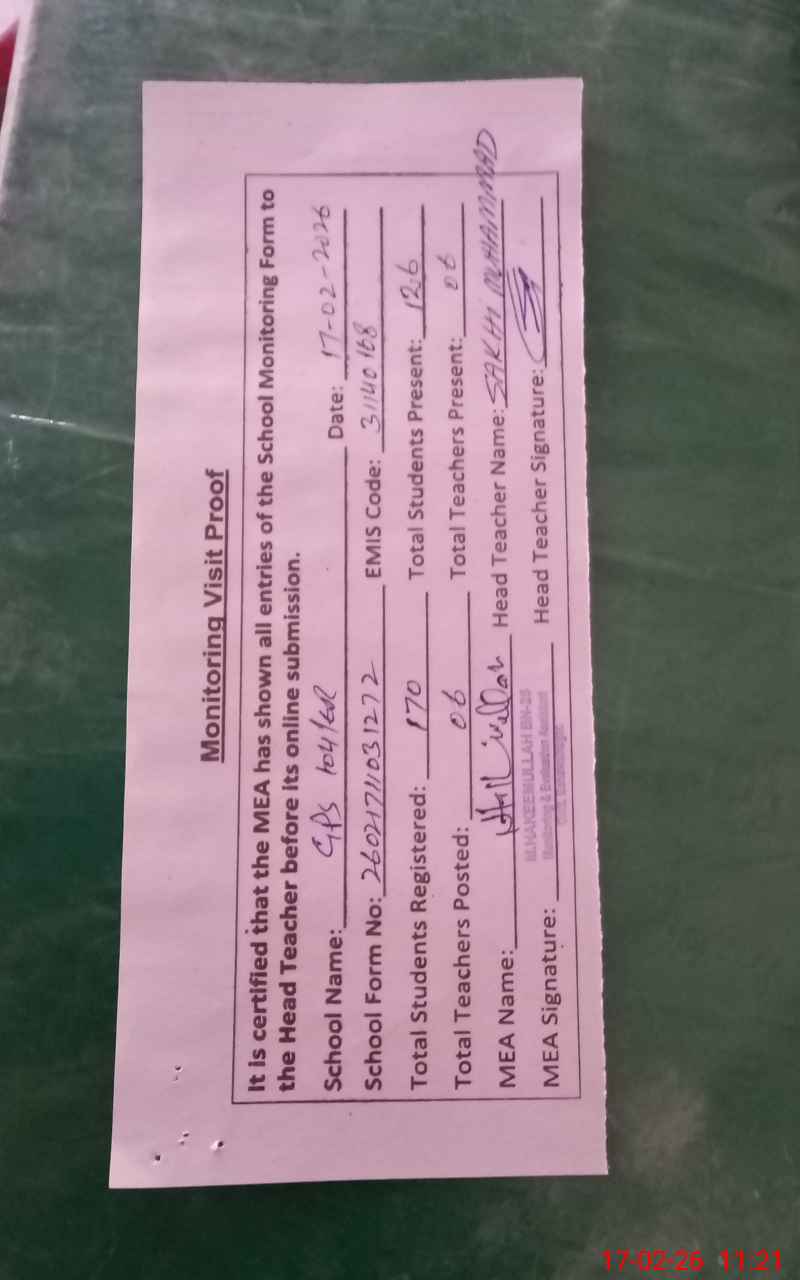 Monitoring Visit Proof
It is certified that the MEA has shown all entries of the School Monitoring Form to
the Head Teacher before its online submission.
School Name: GPS Date: 17-02-2026
School Form No: 26021711031272 EMIS Code: 31140168
Total Students Registered: 170 Total Students Present: 126
Total Teachers Posted: 06 Total Teachers Present: 06
MEA Name: Head Teacher Name: SAKHI MUHAMMAD
MEA Signature: Head Teacher Signature:
M.HAKEEMULLAH
Monitoring & Evaluation Assistant
17-02-26 11:21